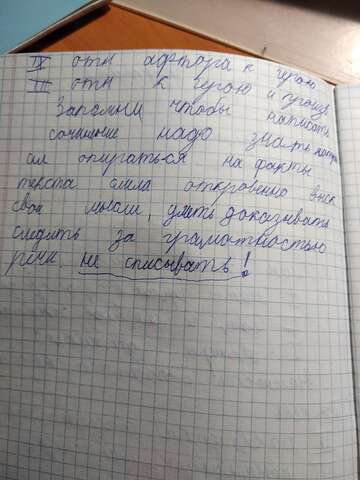 IV отн афтора к герою
III отн к герою и произв
Запомни чтобы написать
сочинение надо знать матери
ал опираться на факты
текста смело откровенно выск
свои мысли, уметь доказывать
следить за грамотностью
речи не списывать!